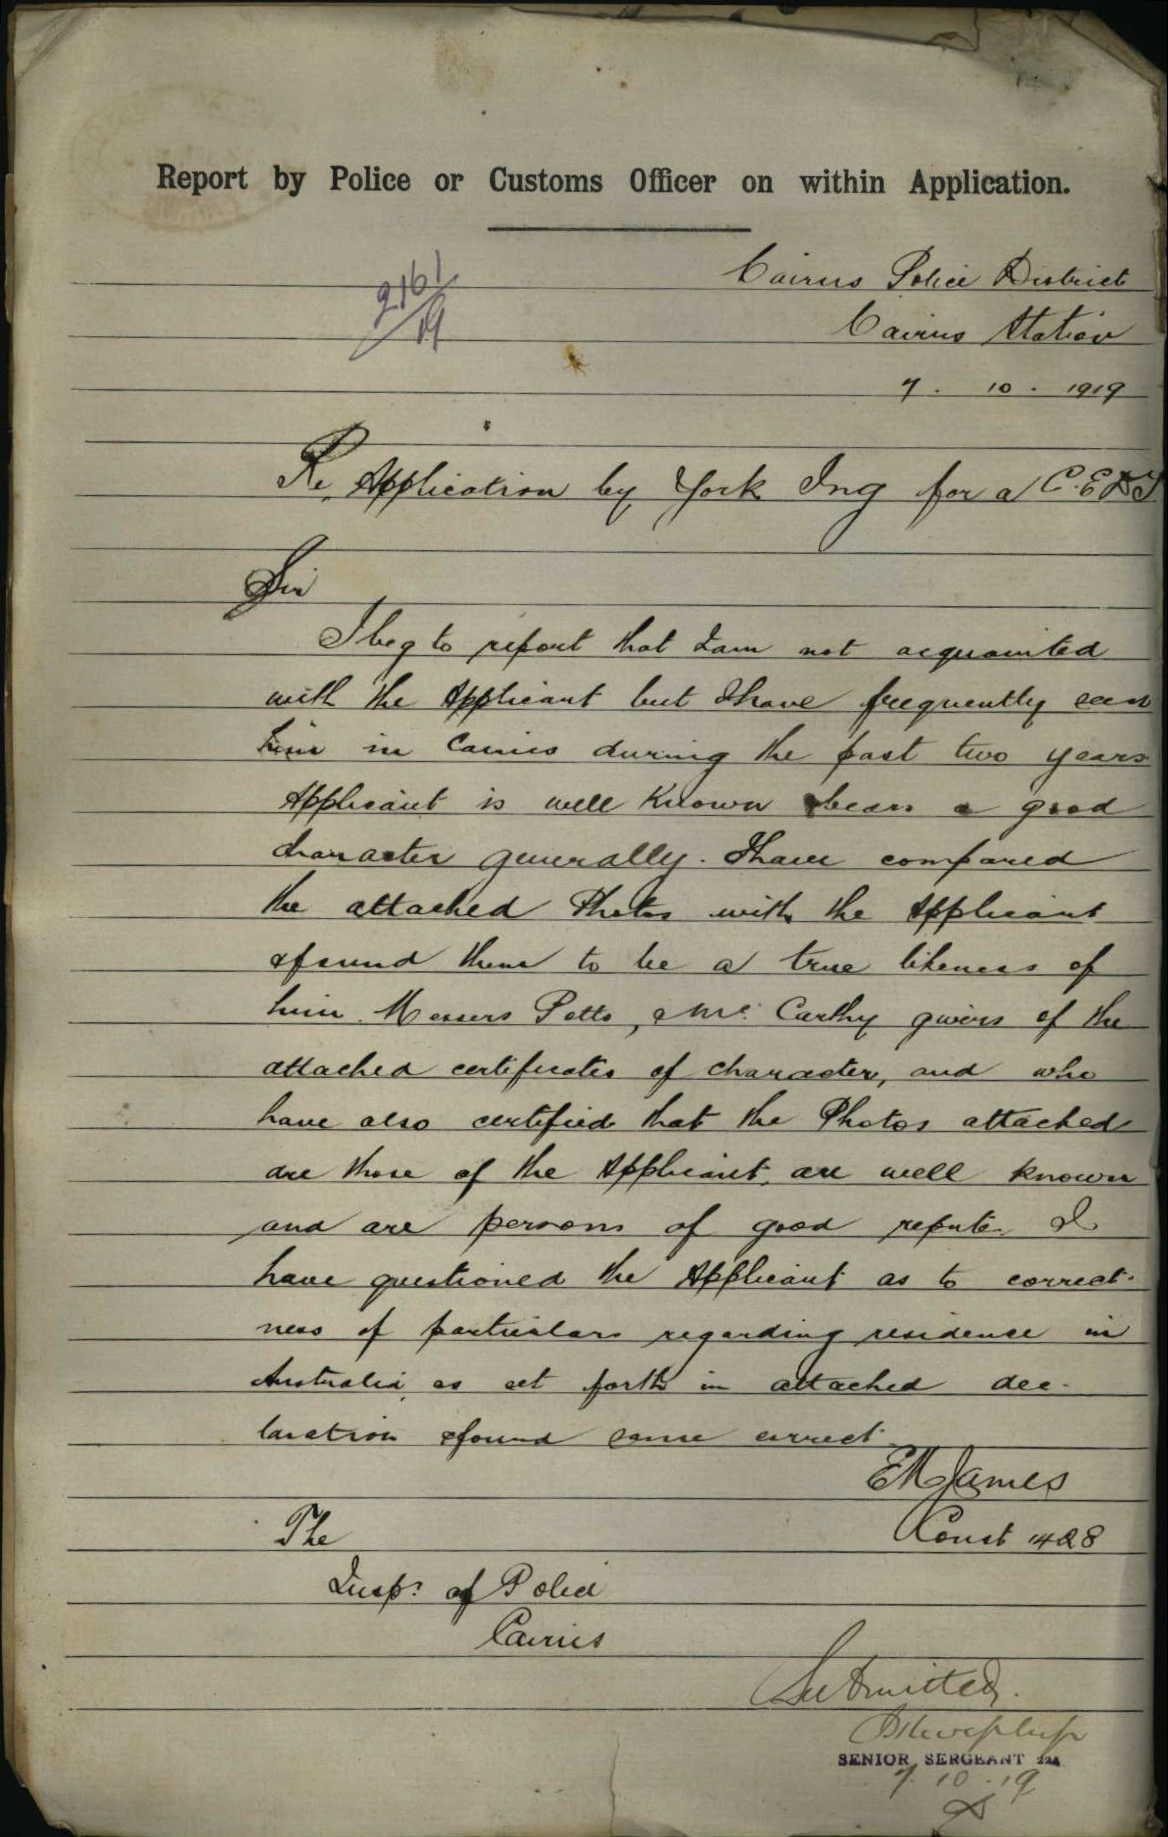 Report by Police or Customs Officer on within Application.
2161/19
Cairns Police District
Cairns Station
7. 10. 1919
Re Application by York Ing for a C.E.D.T
Sir
I beg to report that I am not acquainted
with the Applicant but I have frequently seen
him in Cairns during the past two years
Applicant is well known & bears a good
character generally. I have compared
the attached Photos with the Applicant
& found them to be a true likeness of
him. Messers Potts, & Mc. Carthy givers of the
attached certificates of character, and who
have also certified that the Photos attached
are those of the Applicant, are well known
and are persons of good repute. I
have questioned the Applicant as to correct-
ness of particulars regarding residence in
Australia, as set forth in attached dec-
laration & found same correct.
EM James
Const 1428
The
Inspr of Police
Cairns
Submitted.
SENIOR SERGEANT
7. 10. 19